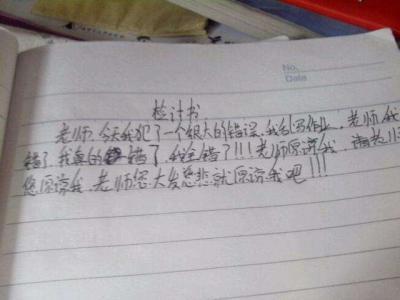 No.
Date
检讨书
老师,今天我犯了一个很大的错误,我乱写作业,老师我
错了,我真的错了,我全错了!!!老师原谅我,请老师
您原谅我,老师您大发慈悲就原谅我吧!!!